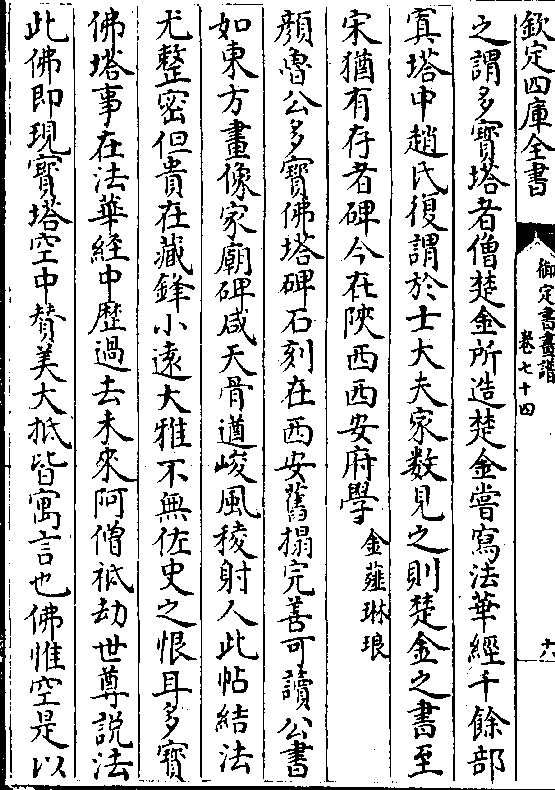 欽定四庫全書
御定書畫譜
卷七十四
十六
之謂多寳塔者僧楚金所造楚金嘗寫法華經千餘部
寘塔中趙氏復謂於士大夫家数見之則楚金之書至
宋猶有存者碑今在陜西西安府學 金薤琳琅
顔魯公多寳佛塔碑石刻在西安舊搨完善可讀公書
如東方畫像家廟碑咸天骨遒峻風稜射人此帖結法
尤整密但貴在藏鋒小遠大雅不無佐史之恨耳多寳
佛塔事在法華經中歴過去未來阿僧祇劫世尊説法
此佛即現寳塔空中賛美大抵皆寓言也佛惟空是以